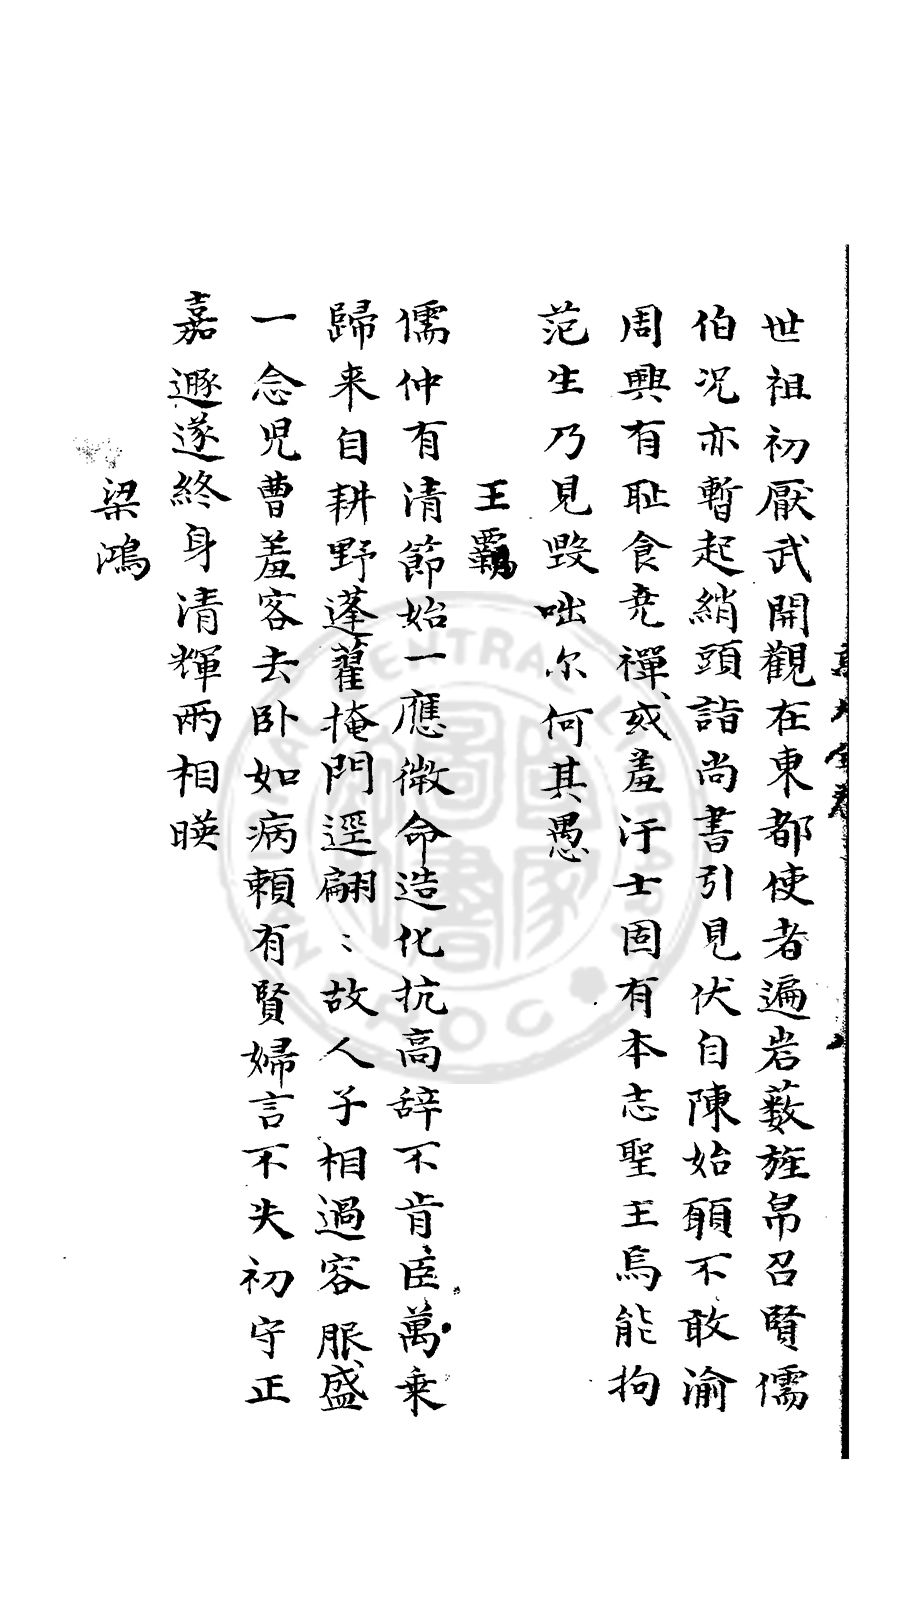 世祖初厭武開觀在東都使者遍岩薮旌帛召賢儒
伯況亦暫起綃頭詣尚書引見伏自陳始願不敢渝
周興有耻食堯禪或羞汙士固有本志聖王烏能拘
范生乃見毀咄尔何其愚
王霸
儒仲有清節始一應徵命造化抗高辞不肯臣萬乗
歸来自耕野蓬藋掩門逕翩〻故人子相過容服盛
一念児曹羞客去卧如病賴有賢婦言不失初守正
嘉遯遂終身清輝兩相暎
梁鴻
NATIONAL CENTRAL LIBRARY ROC
國家圖書